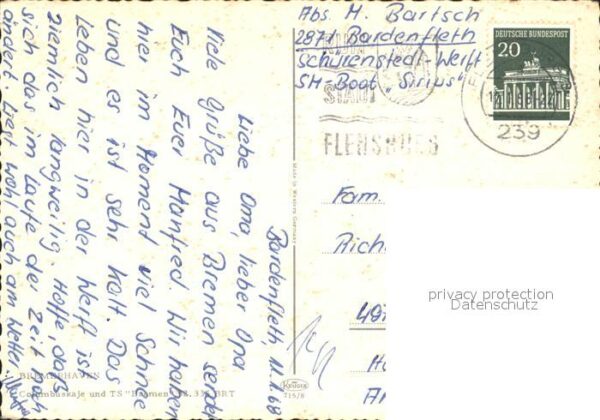 Abs. M. Bartsch
2871 Bardenfleth
Schürenstedt-Werft
SM-Boot "Sirius"
DEUTSCHE BUNDESPOST
20
239
FLENSBURG
Bardenfleth, 11.1.68
Liebe Oma, lieber Opa
Viele Grüße aus Bremen sendet
Euch Euer Manfred. Wir haben
hier im Moment viel Schnee
und es ist sehr kalt. Das
Leben hier in der Werft ist
ziemlich langweilig. Hoffe, daß
sich das im Laufe der Zeit noch
ändert. Lebt wohl, auch am Wetter
Fam.
Rich
497
BREMERHAVEN
Columbuskaje und TS "Bremen" 32.336 BRT
Made in Western Germany
KRÜGER
715/8
privacy protection
www.oldthing.de